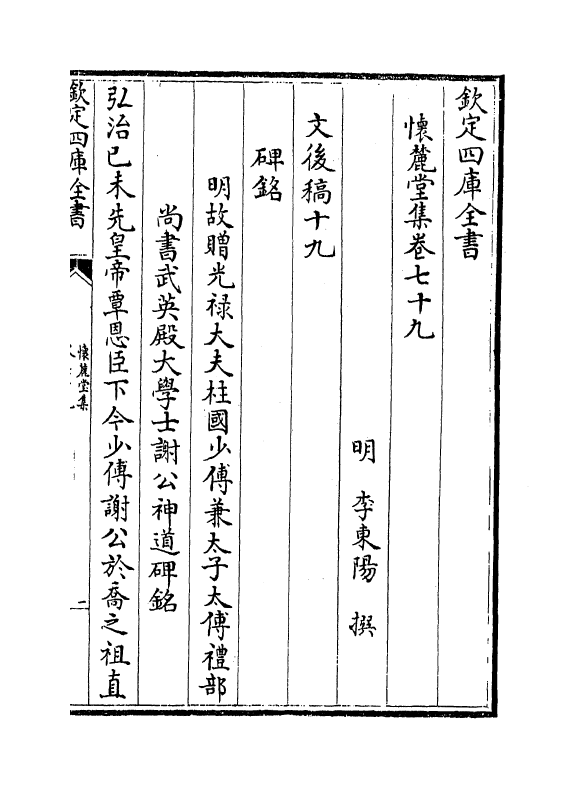 欽定四庫全書
懷麓堂集卷七十九
明 李東陽 撰
文後稿十九
碑銘
明故贈光祿大夫柱國少傅兼太子太傅禮部
尚書武英殿大學士謝公神道碑銘
弘治已未先皇帝覃恩臣下今少傅謝公於喬之祖直
欽定四庫全書
懷麓堂集
二